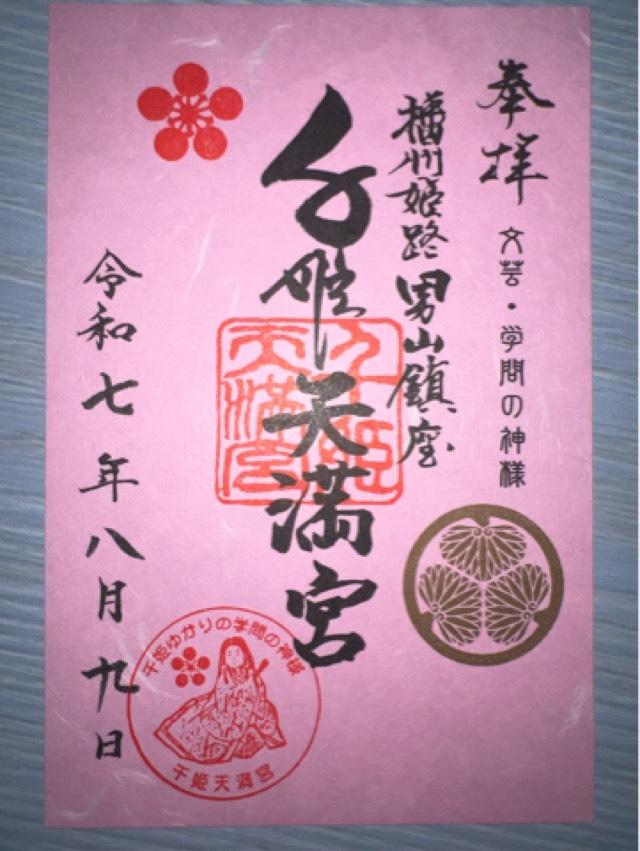 奉拝
文芸・学問の神様
播州姫路男山鎮座
千姫天満宮
千姫
天満宮
令和七年八月九日
千姫ゆかりの学問の神様
千姫天満宮